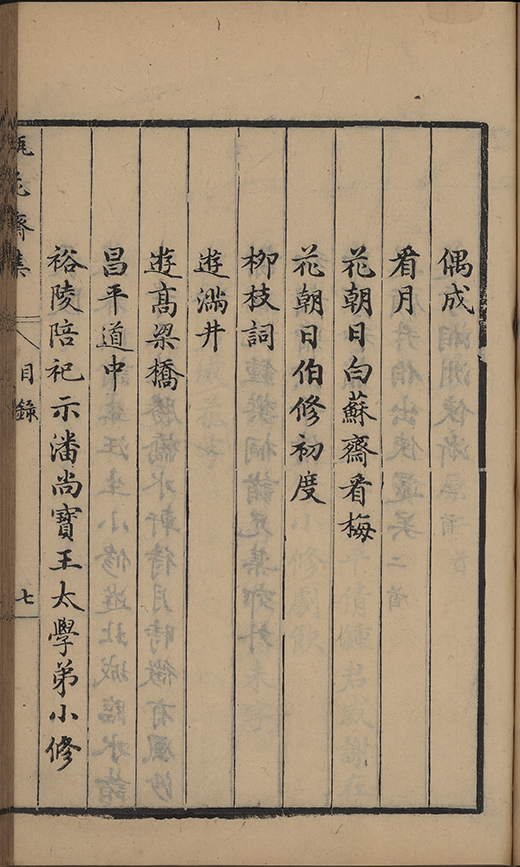 偶成
看月
花朝日白蘇齋看梅
花朝日伯修初度
柳枝詞
遊滿井
遊高梁橋
昌平道中
裕陵陪祀示潘尚寶王太學弟小修
瓶花齋集
目錄
七